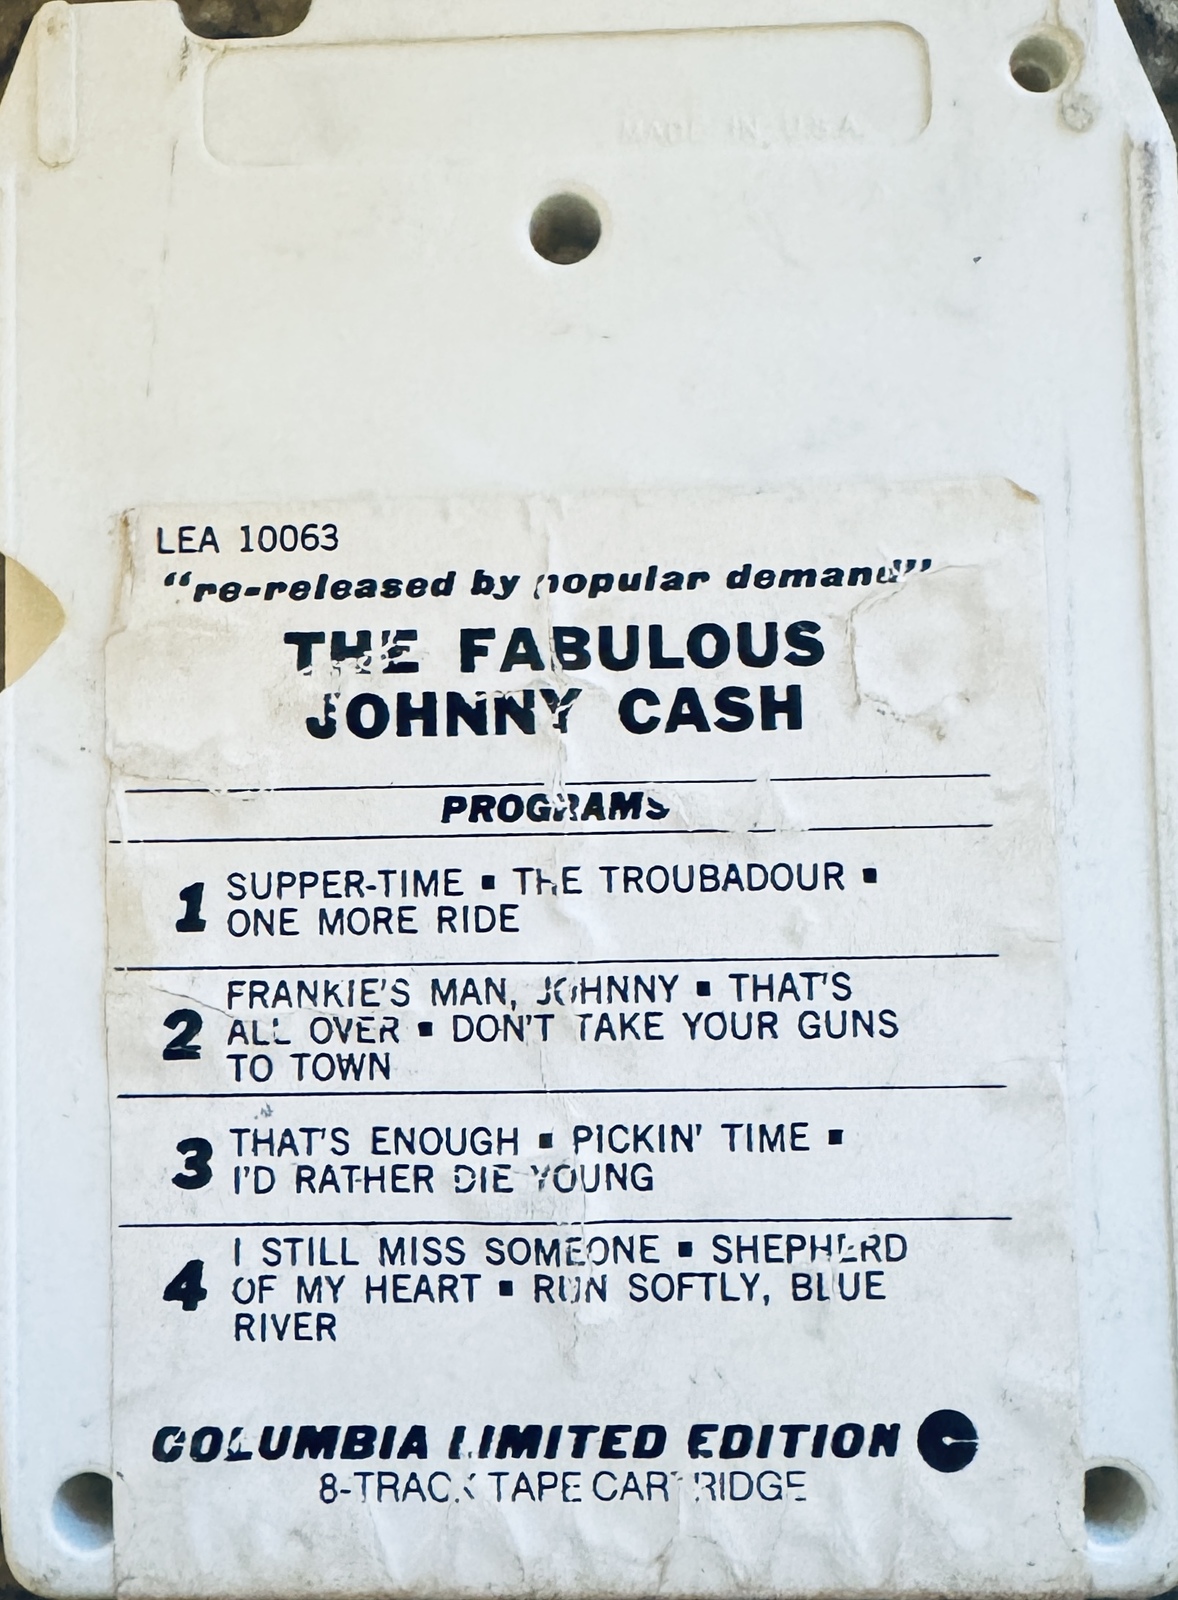 MADE IN U.S.A.
LEA 10063
"re-released by popular demand"
THE FABULOUS
JOHNNY CASH
PROGRAMS
1 SUPPER-TIME ▪ THE TROUBADOUR ▪
ONE MORE RIDE
2 FRANKIE'S MAN, JOHNNY ▪ THAT'S
ALL OVER ▪ DON'T TAKE YOUR GUNS
TO TOWN
3 THAT'S ENOUGH ▪ PICKIN' TIME ▪
I'D RATHER DIE YOUNG
4 I STILL MISS SOMEONE ▪ SHEPHERD
OF MY HEART ▪ RUN SOFTLY, BLUE
RIVER
COLUMBIA LIMITED EDITION C
8-TRACK TAPE CARTRIDGE